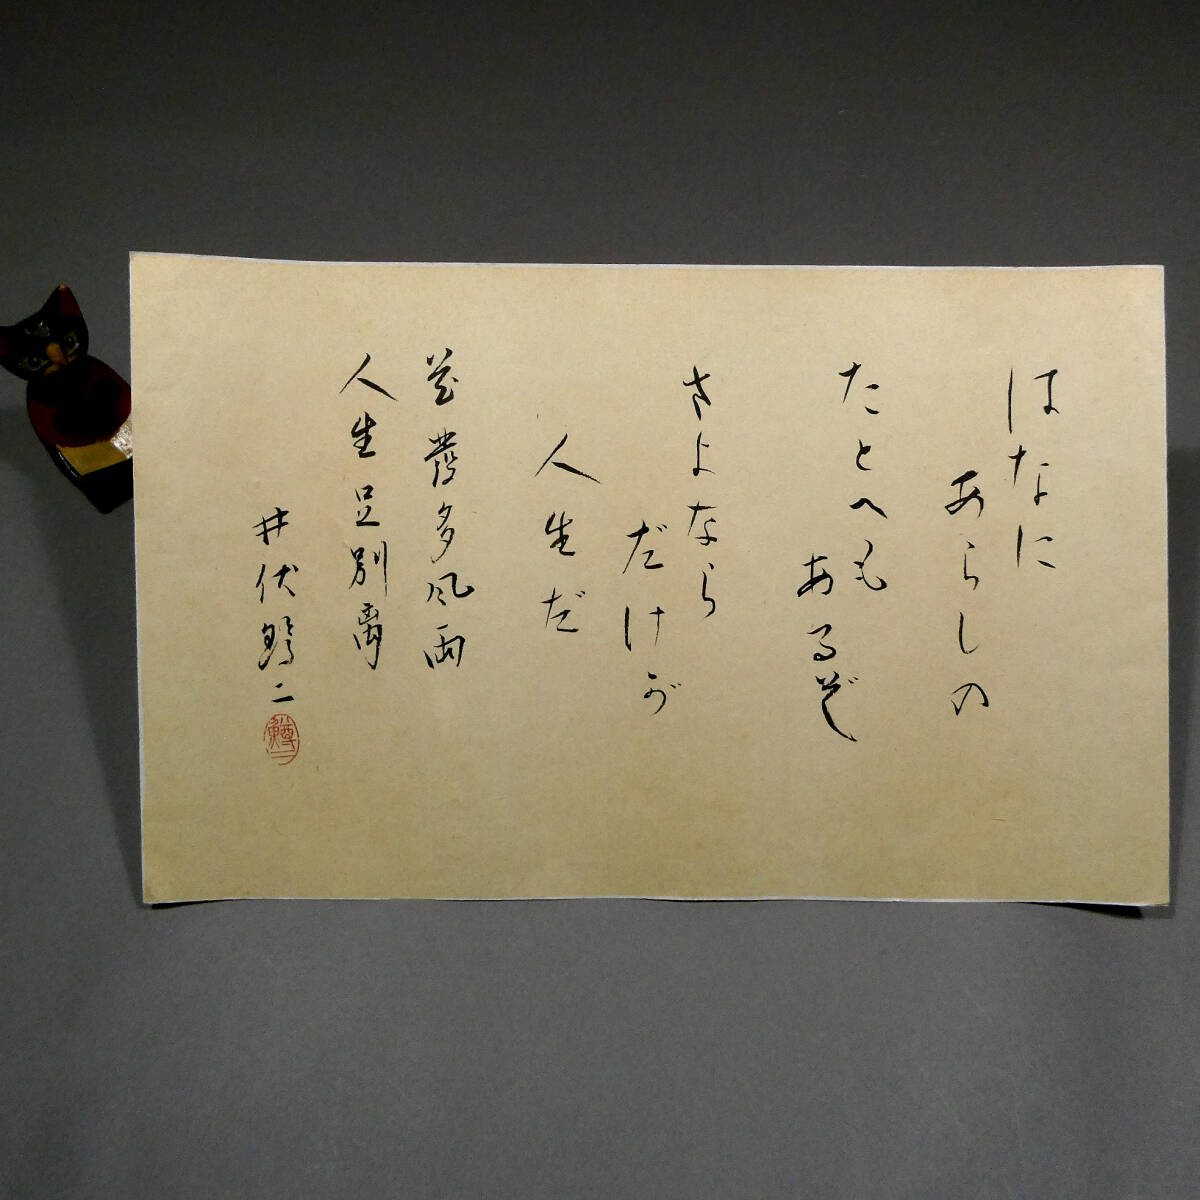 はなに
あらしの
たとへも
あるぞ
さよなら
だけが
人生だ
花發多風雨
人生足別離
井伏鱒二
鱒二